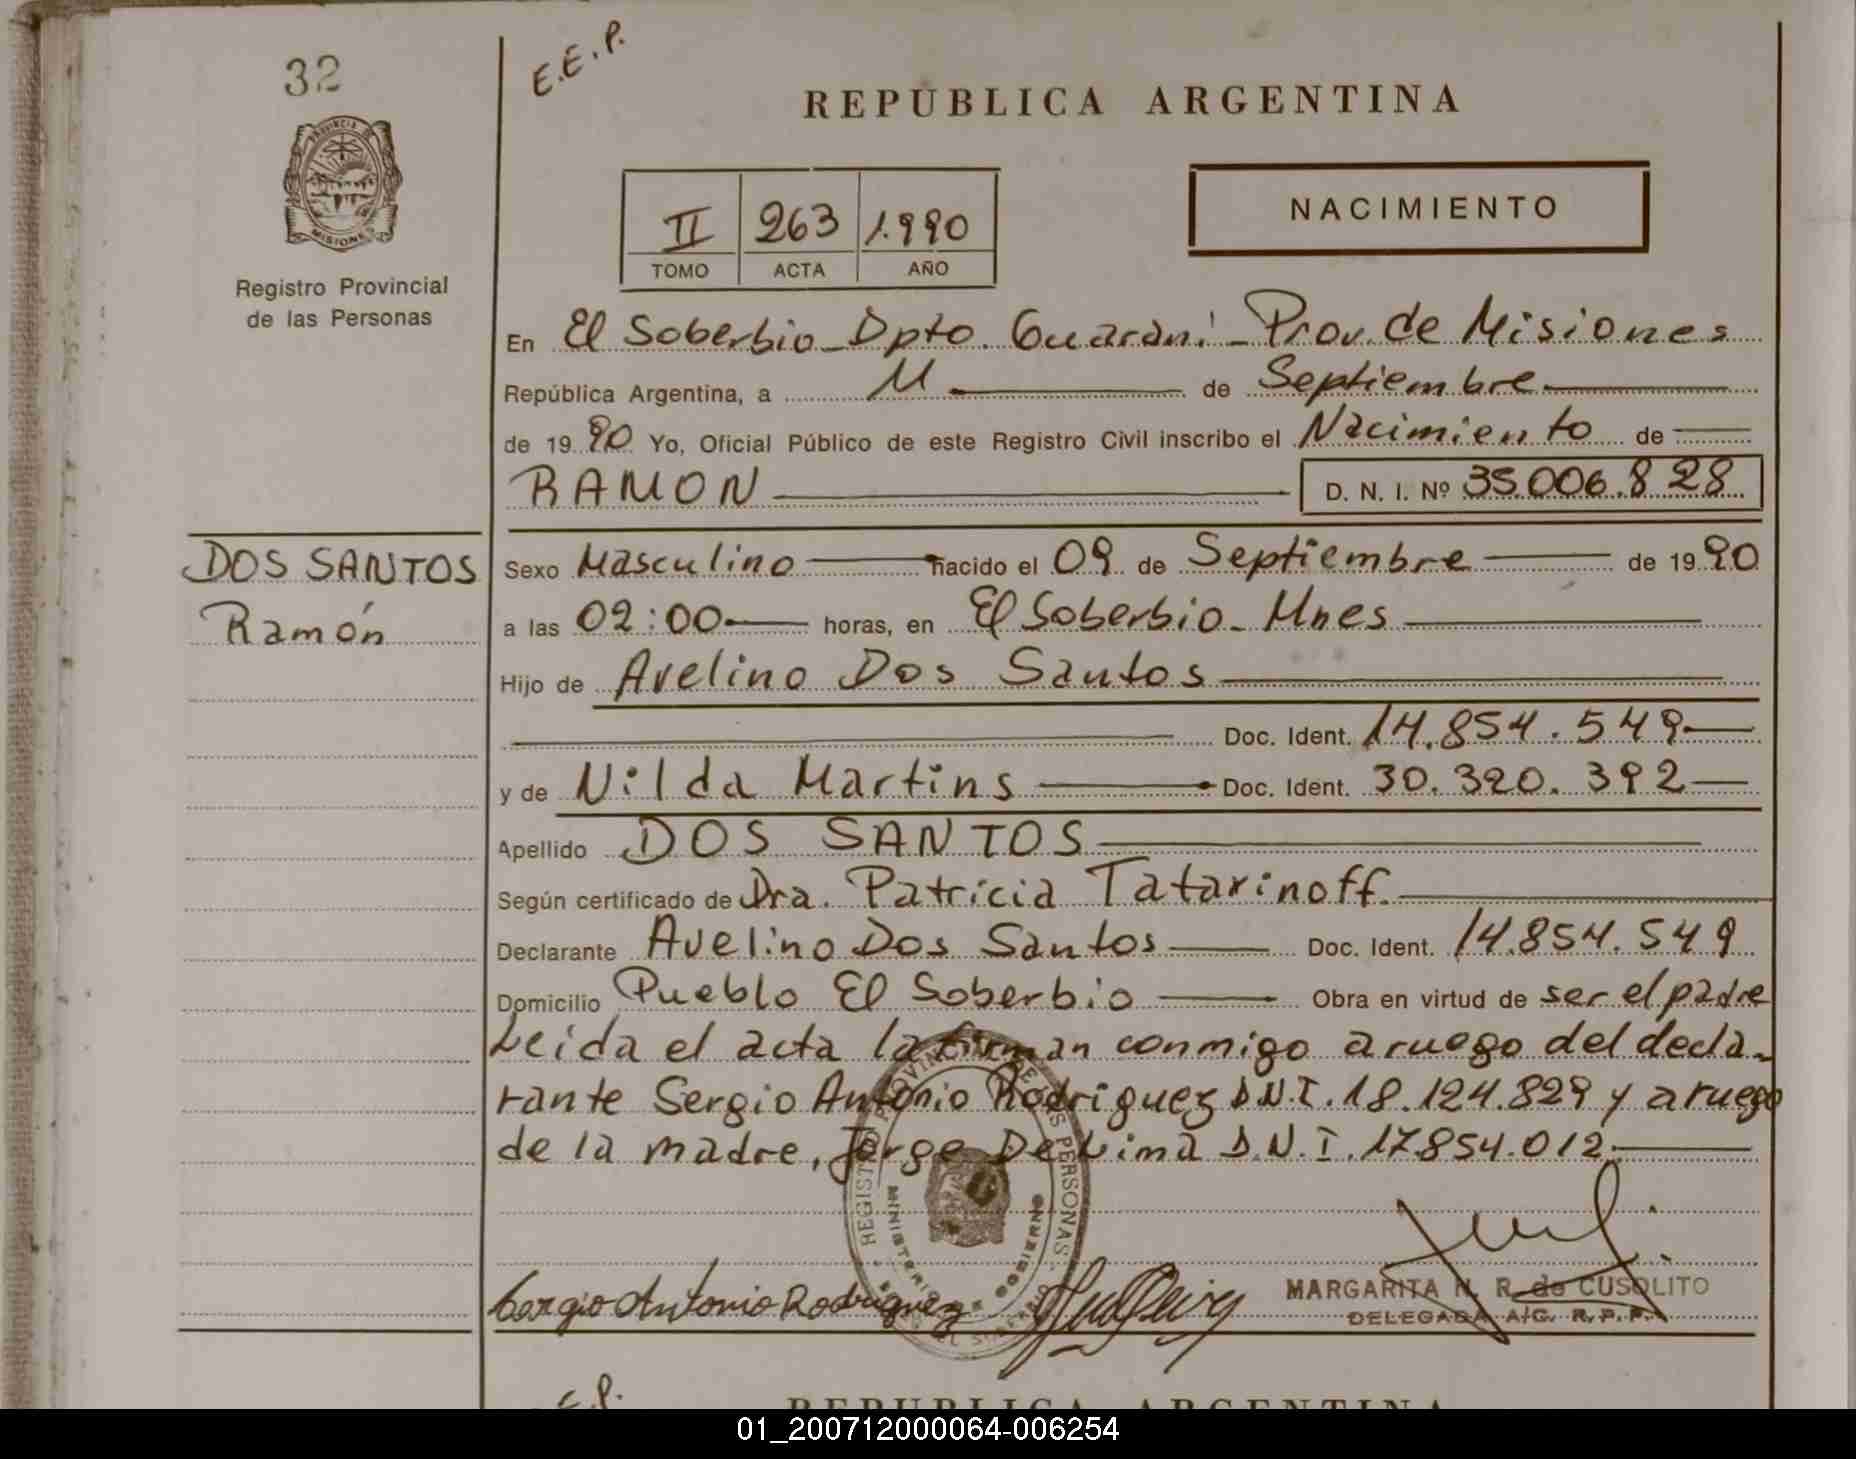 32
E.E.P.
REPÚBLICA ARGENTINA
PROVINCIA DE
MISIONES
Registro Provincial
de las Personas
II 263 1.990
TOMO ACTA AÑO
NACIMIENTO
En El Soberbio_Dpto. Guaraní_Prov. de Misiones
República Argentina, a 11 de Septiembre
de 1990 Yo, Oficial Público de este Registro Civil inscribo el Nacimiento de
RAMON D. N. I. Nº 35.006.828
DOS SANTOS
Ramón
Sexo Masculino nacido el 09 de Septiembre de 1990
a las 02:00 horas, en El Soberbio_Mnes
Hijo de Avelino Dos Santos
Doc. Ident. 14.854.549
y de Nilda Martins Doc. Ident. 30.320.392
Apellido DOS SANTOS
Según certificado de Dra. Patricia Tatarinoff.
Declarante Avelino Dos Santos Doc. Ident. 14.854.549
Domicilio Pueblo El Soberbio Obra en virtud de ser el padre
Leída el acta la firman conmigo a ruego del decla-
rante Sergio Antonio Rodriguez D.N.I. 18.124.829 y a ruego
de la madre, Jorge De Lima D.N.I. 17.854.012.
REGISTRO PROVINCIAL DE LAS PERSONAS
MINISTERIO GOBIERNO
Sergio Antonio Rodriguez
MARGARITA N. R. de CUSOLITO
DELEGADA A/C. R.P.P.
E.P.
REPUBLICA ARGENTINA
01_200712000064-006254